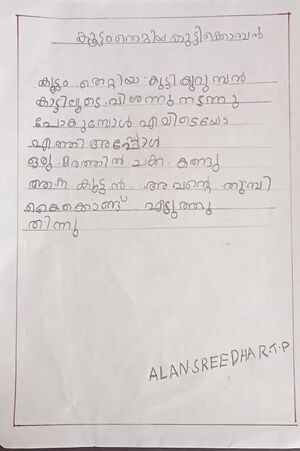 കൂട്ടംതെറ്റിയ കുട്ടിക്കൊമ്പൻ
കൂട്ടം തെറ്റിയ കുട്ടികുറുമ്പൻ
കാട്ടിലൂടെ വിശന്നു നടന്നു
പോകുമ്പോൾ എവിടെയോ
എത്തി അപ്പോൾ
ഒരു മരത്തിൽ ചക്ക കണ്ടു
കുട്ടൻ അവന്റെ തുമ്പി
കൈകൊണ്ട് എടുത്തു
തിന്നു
ALANSREEDHAR.T.P